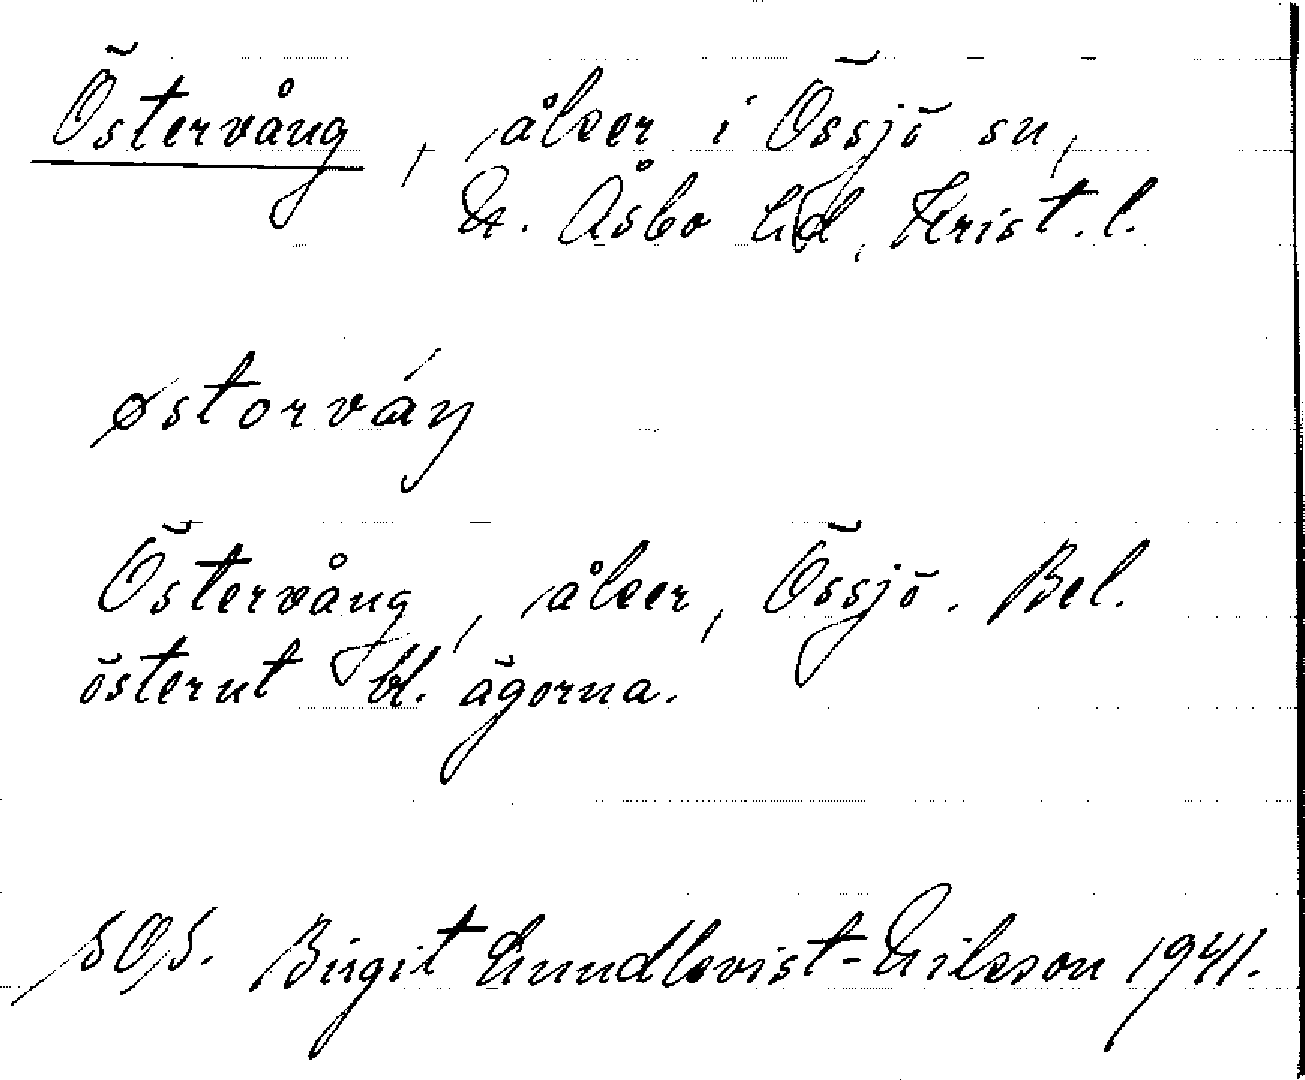 Östervång, åker i Össjö sn,
N. Åsbo hd, Krist. l.
østorváŋ
Östervång, åker, Össjö. Bel.
österut bl. ägorna.
SOS. Birgit Lundkvist-Nilsson 1941.